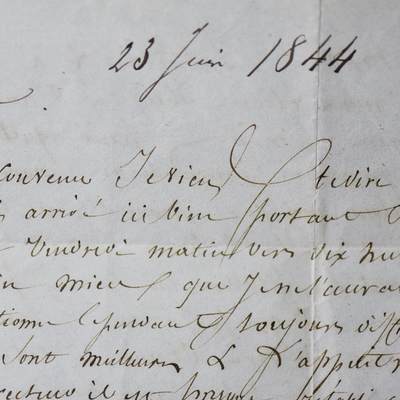 23 Juin 1844
convenu Je viens te dire
arrivé ici bien portant
Vendredi matin vers dix hu
mieux que Je ne l'aura
cependant toujours diff
sont meilleurs & l'appétit
il est